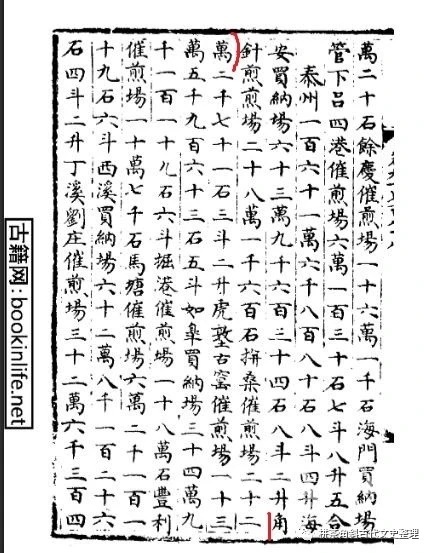 萬二十石餘慶催煎場一十六萬一千石海門買納場
管下呂四港催煎場六萬一百三十石七斗八升五合
泰州一百六十一萬六千八百八十石八斗四升海
安買納場六十三萬九千六百三十四石八斗二升角
針煎煎場二十八萬一千六百石拼桑催煎場二十二
萬二千七十一石三斗二升虎墩古窰催煎場一十三
萬五千九百六十三石五斗如皐買納場三十四萬九
千一百一十九石六斗掘港催煎場一十八萬石豐利
催煎場一十萬七千石馬塘催煎場六萬二千一百一
十九石六斗西溪買納場六十二萬八千一百二十六
石四斗二升丁溪劉庄催煎場三十二萬六千三百四
古籍网:bookinlife.net
角斜古代文史整理